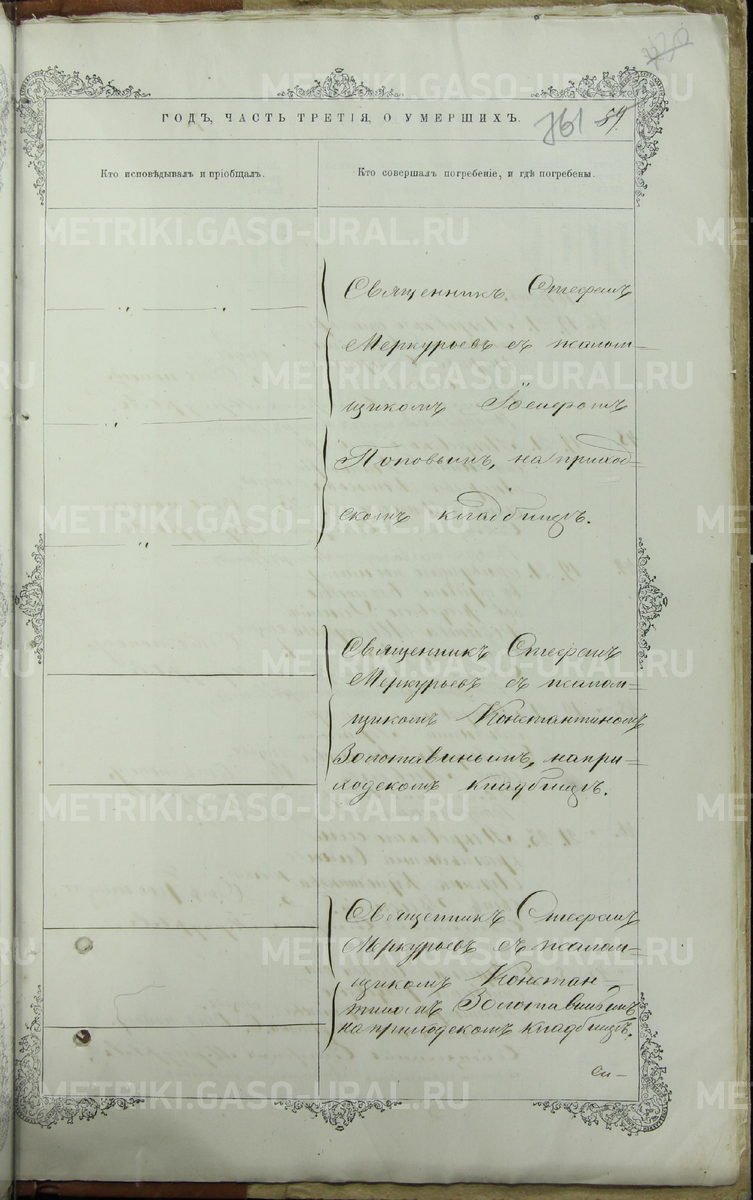 ГОДЪ, ЧАСТЬ ТРЕТІЯ, О УМЕРШИХЪ.
761 59.
Кто исповѣдывалъ и пріобщалъ.
Кто совершалъ погребеніе, и гдѣ погребены.
Священникъ Стефанъ
„ „
Меркурьевъ съ псалом-
щикомъ Іосифомъ
„
Поповымъ, на приход-
скомъ кладбищѣ.
„
Священникъ Стефанъ
Меркурьевъ съ псалом-
щикомъ Константиномъ
Золотавинымъ, на при-
ходскомъ кладбищѣ.
Священникъ Стефанъ
Меркурьевъ съ псалом-
щикомъ Констан-
тиномъ Золотавинымъ
на приходскомъ кладбищѣ.
Си-
METRIKI.GASO-URAL.RU